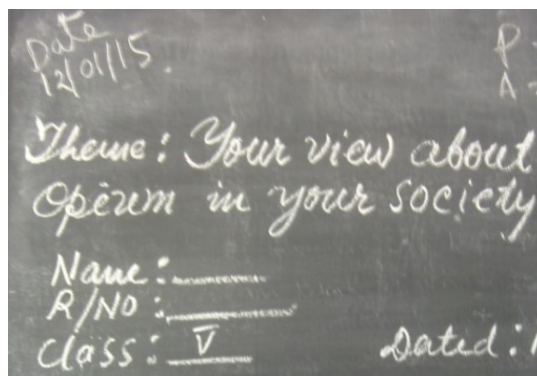 Date
12/01/15.
P -
A -
Theme: Your view about
Opeum in your society
Name:
R/NO :
Class: V
Dated: